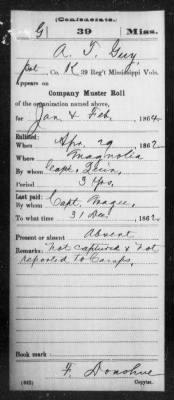 (Confederate.)
G 39 Miss.
A. T. Guy
Pvt, Co. K, 39 Reg't Mississippi Vols.
Appears on
Company Muster Roll
of the organization named above,
for Jan & Feb, 1864.
Enlisted:
When Apr. 29, 1862
Where Magnolia
By whom Capt. Quin
Period 3 Yrs.
Last paid:
By whom Capt. Magee
To what time 31 Dec, 1862
Present or absent Absent
Remarks: Not captured & not
reported to Camps.
Book mark:
F. Donohue
(642) Copyist.